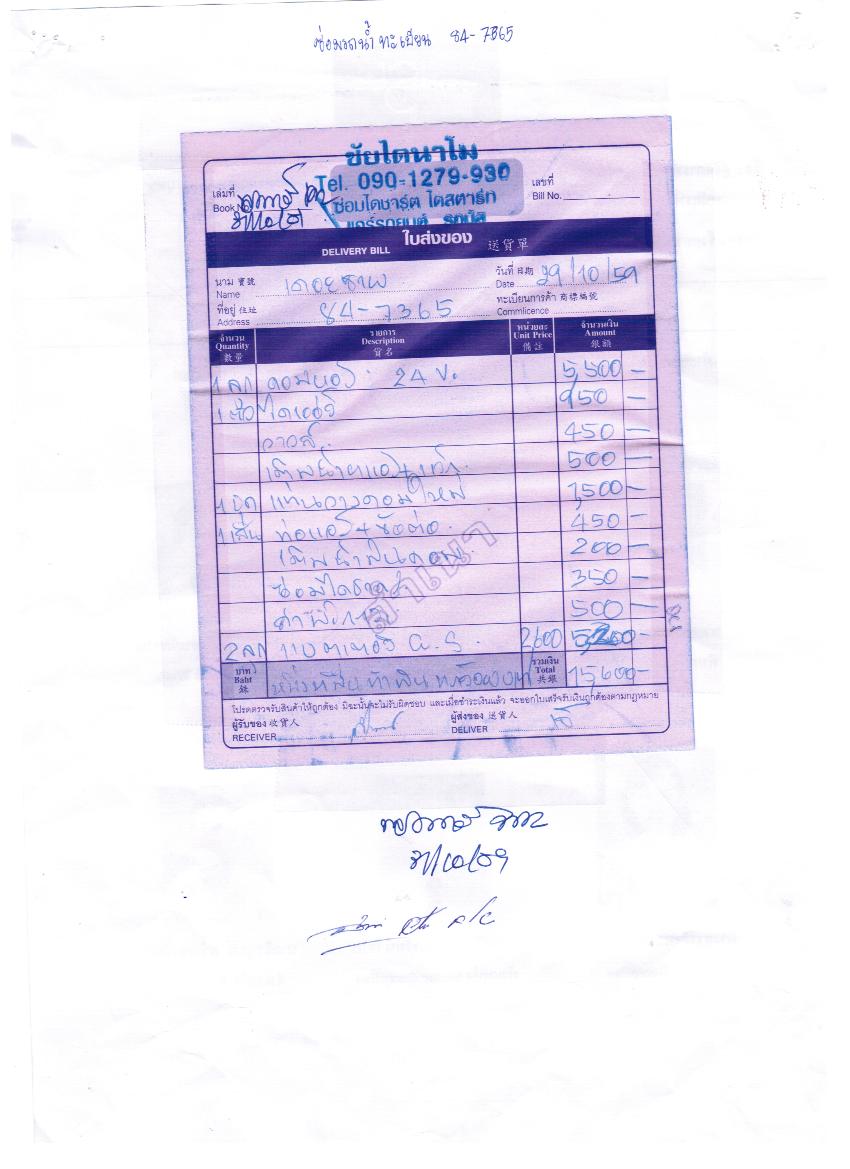 ซ่อมรถน้ำ ทะเบียน 84-7365
ชัยไดนาโม
Tel. 090-1279-930
ซ่อมไดชาร์ต ไดสตาร์ท
แอร์รถยนต์ รถบัส
เล่มที่
Book No.
เลขที่
Bill No.
31/10/59
ใบส่งของ 送貨單
DELIVERY BILL
นาม 寶號
Name
วันที่ 日期
Date 29/10/59
ที่อยู่ 住址
Address 84-7365
ทะเบียนการค้า 商標編號
Commlicence
จำนวน Quantity 數量 รายการ Description 貨名 หน่วยละ Unit Price 備註 จำนวนเงิน Amount 銀額
1 ลูก คอมแอร์ 24 V. 5,500 -
950 -
วาล์ว 450 -
เติมน้ำยาแอร์ 500 -
1 ชุด แท่นวางคอมใหม่ 1,500 -
1 เส้น ท่อแอร์+ข้อต่อ 450 -
เติมน้ำมันคอม 200 -
ซ่อมไดชาร์จ 350 -
500 -
2 ลูก แบตเตอรี่ G.S. 2600 5200 -
สำเนา
บาท Baht 銖 หนึ่งหมื่นห้าพันหกร้อยบาท รวมเงิน Total 共銀 15600 -
โปรดตรวจรับสินค้าให้ถูกต้อง มิฉะนั้นจะไม่รับผิดชอบ และเมื่อชำระเงินแล้ว จะออกใบเสร็จรับเงินถูกต้องตามกฎหมาย
ผู้รับของ 收貨人
RECEIVER
ผู้ส่งของ 送貨人
DELIVER
31/10/59